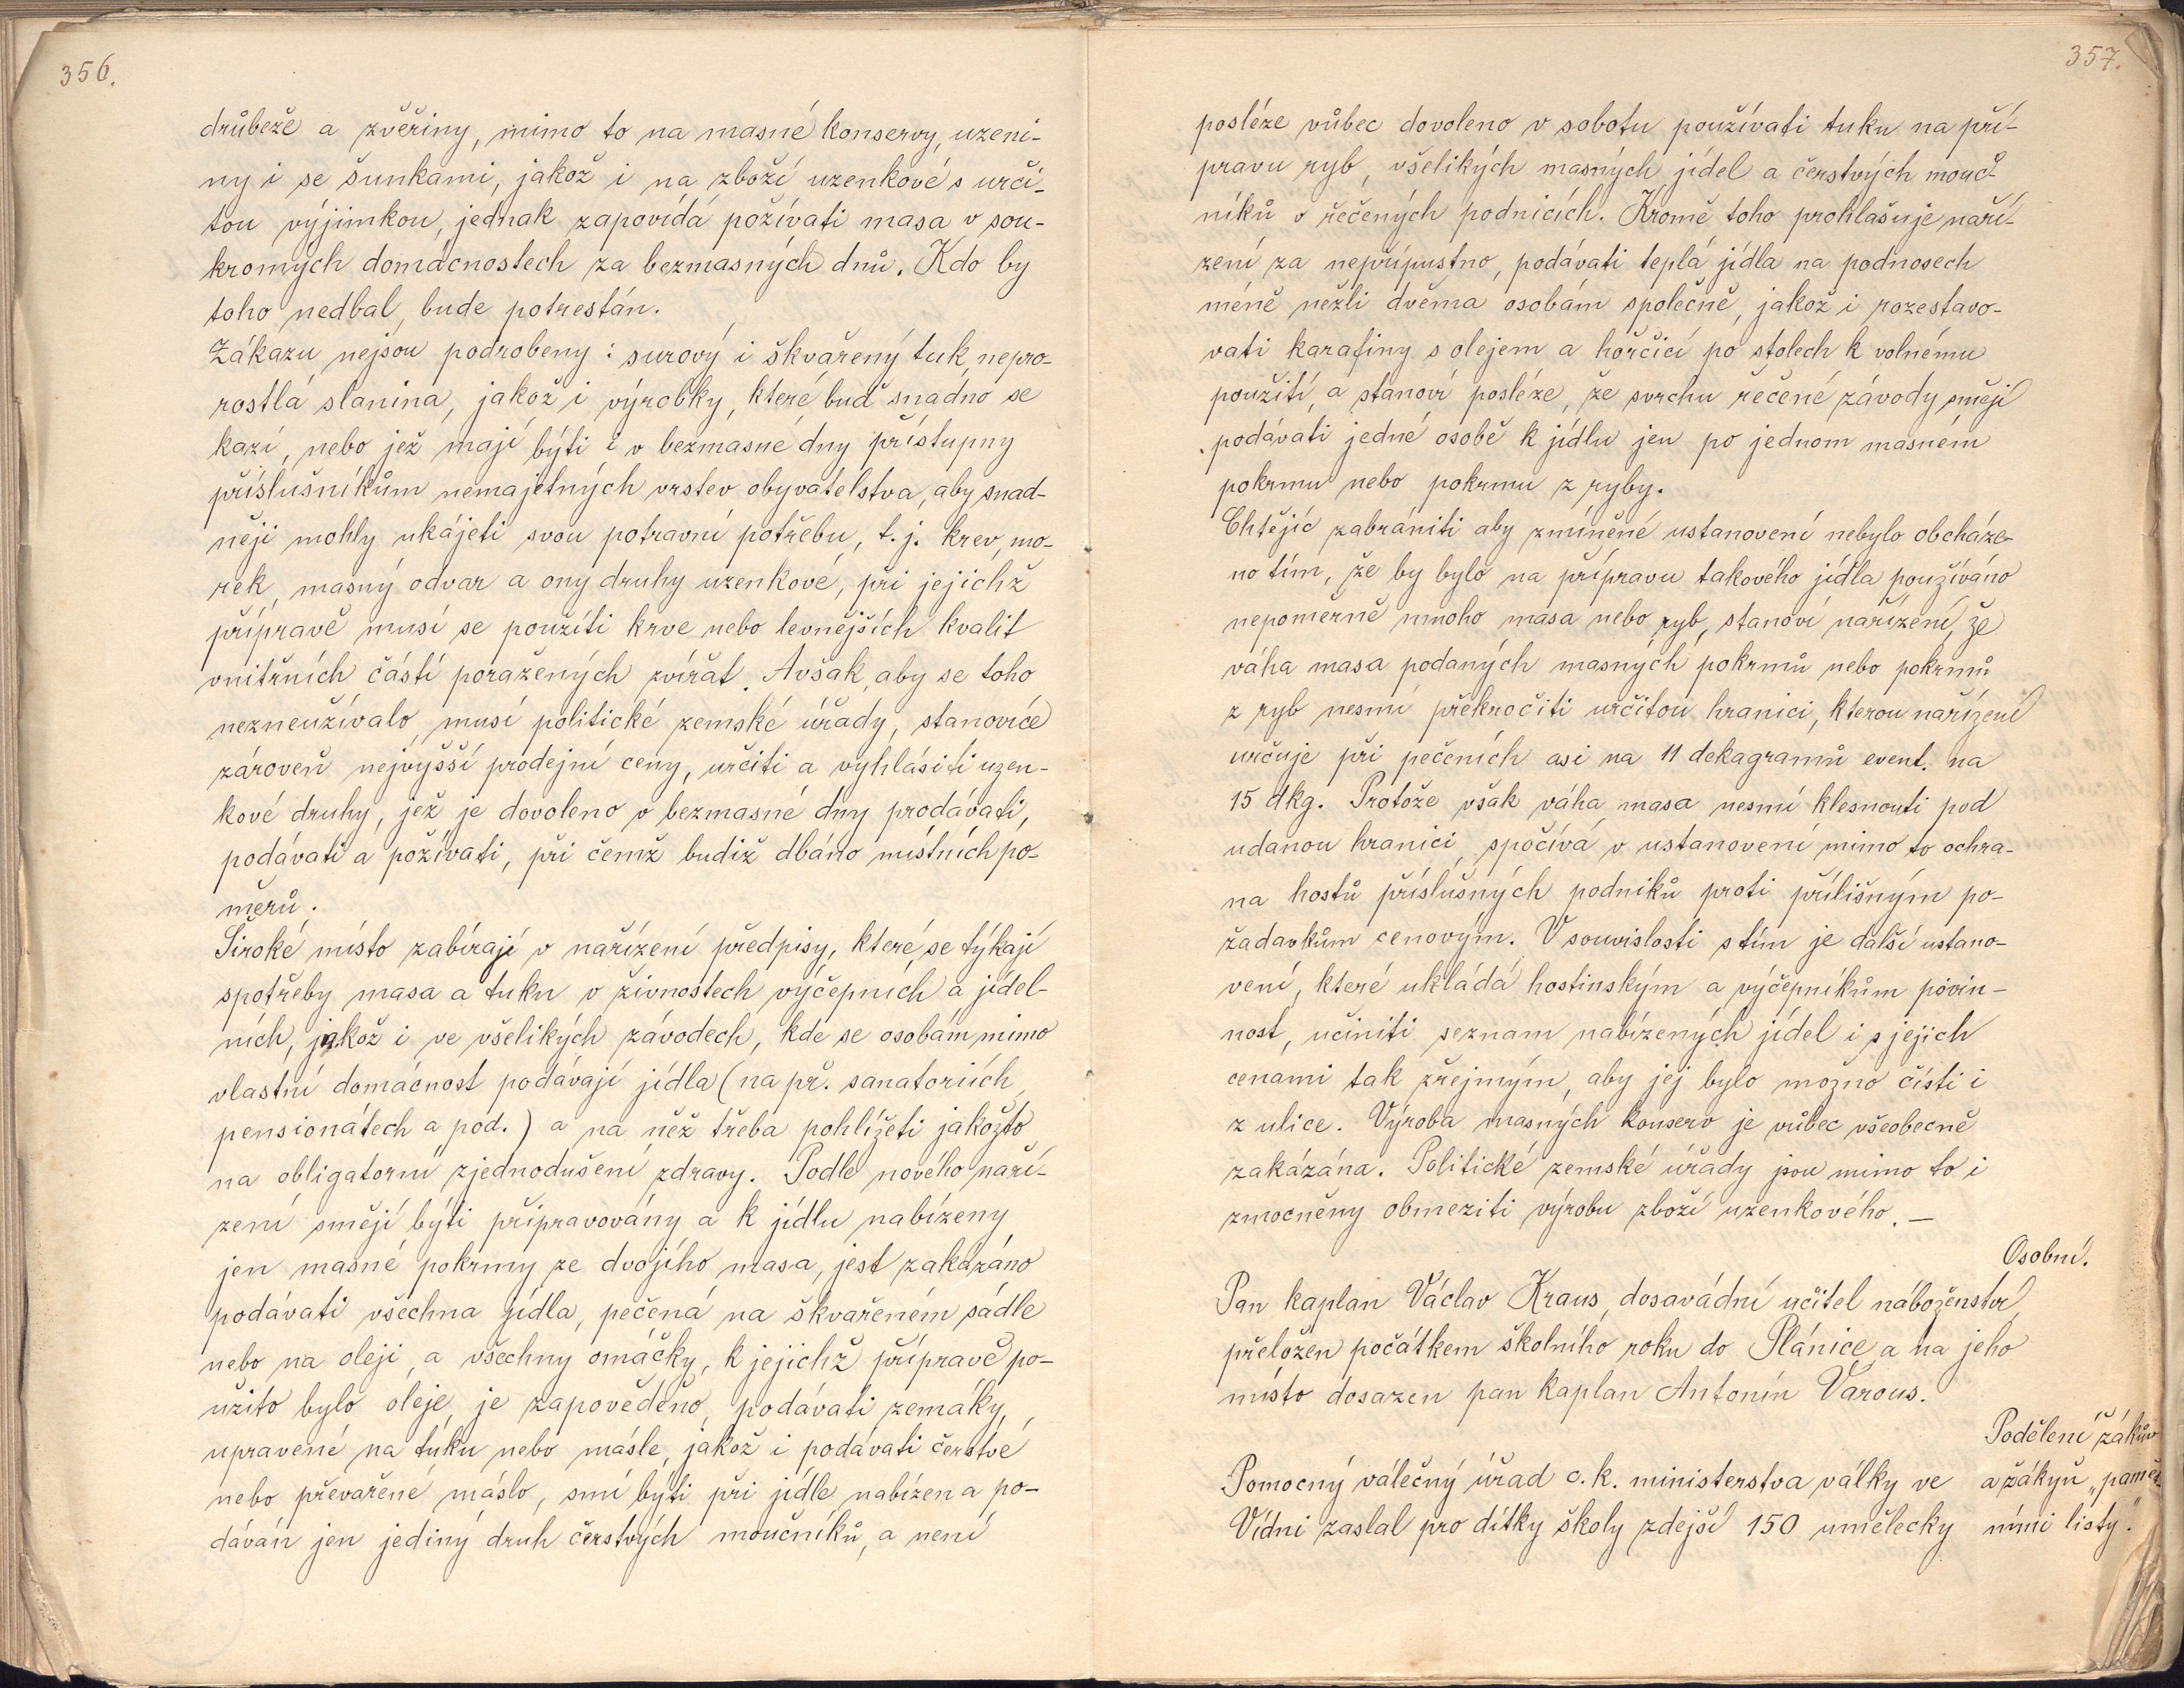 356.
drůbeže a zvěřiny, mimo to na masné konservy, uzeni-
ny i se šunkami, jakož i na zboží uzenkové s urči-
tou výjimkou, jednak zapovídá požívati masa v sou-
kromých domácnostech za bezmasných dnů. Kdo by
toho nedbal, bude potrestán.
Zákazu nejsou podrobeny: surový i škvařený tuk, nepro-
rostlá slanina, jakož i výrobky, které buď snadno se
kazí, nebo jež mají býti i v bezmasné dny přístupny
příslušníkům nemajetných vrstev obyvatelstva, aby snad-
něji mohly ukájeti svou potravní potřebu, t. j. krev, mo-
rek, masný odvar a ony druhy uzenkové, při jejichž
přípravě musí se použíti krve nebo levnějších kvalit
vnitřních částí poražených zvířat. Avšak, aby se toho
nezneužívalo, musí politické zemské úřady, stanovíce
zároveň nejvyšší prodejní ceny, určiti a vyhlásiti uzen-
kové druhy, jež je dovoleno v bezmasné dny prodávati,
podávati a požívati, při čemž budiž dbáno místních po-
měrů.
Široké místo zabírají v nařízení předpisy, které se týkají
spotřeby masa a tuku v živnostech výčepních a jídel-
ních, jakož i ve všelikých závodech, kde se osobám mimo
vlastní domácnost podávají jídla (na př. sanatoriích,
pensionátech a pod.) a na něž třeba pohlížeti jakožto
na obligatorní zjednodušení zdravy. Podle nového naří-
zení smějí býti připravovány a k jídlu nabízeny
jen masné pokrmy ze dvojího masa, jest zakázáno
podávati všechna jídla, pečená na škvařeném sádle
nebo na oleji, a všechny omáčky, k jejichž přípravě po-
užito bylo oleje, je zapověděno, podávati zemáky,
upravené na tuku nebo másle, jakož i podávati čerstvé
nebo převařené máslo, smí býti při jídle nabízen a po-
dáván jen jediný druh čerstvých moučníků, a není
357.
posléze vůbec dovoleno v sobotu používati tuku na pří-
pravu ryb, všelikých masných jídel a čerstvých mouč-
níků v řečených podnicích. Kromě toho prohlašuje naří-
zení za nepřípustno, podávati teplá jídla na podnosech
méně nežli dvěma osobám společně, jakož i rozestavo-
vati karafiny s olejem a hořčicí po stolech k volnému
použití, a stanoví posléze, že svrchu řečené závody smějí
podávati jedné osobě k jídlu jen po jednom masném
pokrmu nebo pokrmu z ryby.
Chtějíc zabrániti aby zmíněné ustanovení nebylo obcháze-
no tím, že by bylo na přípravu takového jídla používáno
nepoměrně mnoho masa nebo ryb, stanoví nařízení, že
váha masa podaných masných pokrmů nebo pokrmů
z ryb nesmí překročiti určitou hranici, kterou nařízení
určuje při pečeních asi na 11 dekagramů event. na
15 dkg. Protože však váha masa nesmí klesnouti pod
udanou hranici, spočívá v ustanovení mimo to ochra-
na hostů příslušných podniků proti přílišným po-
žadavkům cenovým. V souvislosti s tím je další ustano-
vení, které ukládá hostinským a výčepníkům povin-
nost, učiniti seznam nabízených jídel i s jejich
cenami tak zřejmým, aby jej bylo možno čísti i
z ulice. Výroba masných konserv je vůbec všeobecně
zakázána. Politické zemské úřady jsou mimo to i
zmocněny obmeziti výrobu zboží uzenkového. —
Osobní.
Pan kaplan Václav Kraus, dosavádní učitel náboženství,
přeložen počátkem školního roku do Plánice a na jeho
místo dosazen pan kaplan Antonín Varous.
Podělení žákův
a žákyň „pamět-
ními listy".
Pomocný válečný úřad c. k. ministerstva války ve
Vídni zaslal pro dítky školy zdejší 150 umělecky